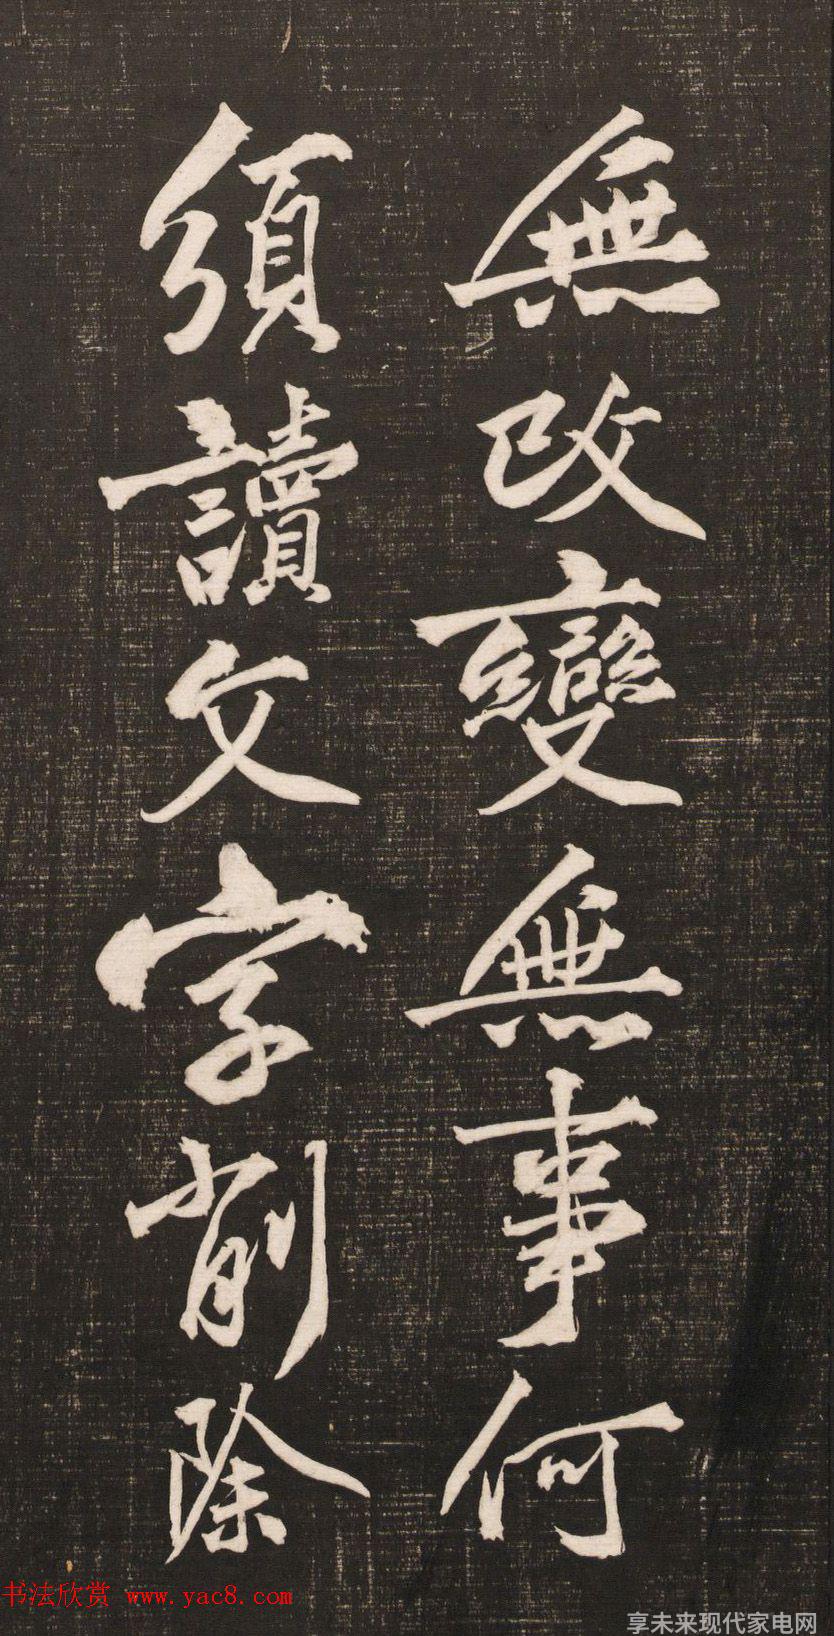 無改變無事何
須讀文字削除
书法欣赏 www.yac8.com
享未来现代家电网